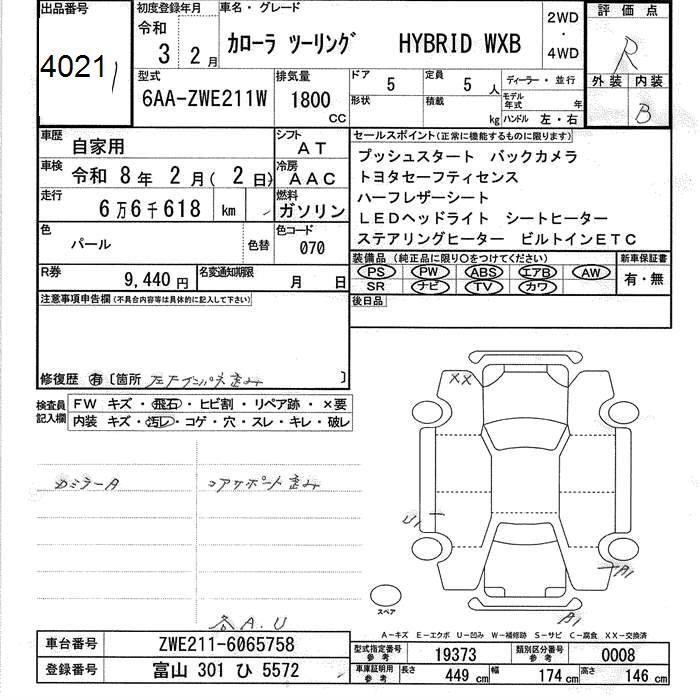 出品番号
4021
初度登録年月
令和
3 2月
車名・グレード
カローラ ツーリング HYBRID WXB
2WD
・
4WD
評価点
R
外装 内装
B
型式
6AA-ZWE211W
排気量
1800
CC
ドア
5
定員
5 人
ディーラー・並行
形状
積載
kg
モデル年式
年
ハンドル 左・右
車歴
自家用
シフト
AT
車検
令和 8年 2月( 2日)
冷房
AAC
走行
6万6千618 km
燃料
ガソリン
色
パール
色替
色コード
070
R券
9,440円
名変通知期限
月 日
セールスポイント(正常に機能するものに限ります)
プッシュスタート バックカメラ
トヨタセーフティセンス
ハーフレザーシート
LEDヘッドライト シートヒーター
ステアリングヒーター ビルトインETC
装備品(純正品に限り○をつけてください)
新車保証書
PS PW ABS エアB AW
SR ナビ TV カワ
有・無
後日品
注意事項申告欄(不具合内容等は具体的に記入して下さい)
修復歴 有 [箇所 左Fインパネ歪み ]
検査員
記入欄
FW キズ・飛石・ヒビ割・リペア跡・×要
内装 キズ・汚レ・コゲ・穴・スレ・キレ・破レ
ミラーA
コアサポート歪み
各A.U
XX
U1
A1
A1
スペア
A-キズ E-エクボ U-凹み W-補修跡 S-サビ C-腐食 XX-交換済
車台番号
ZWE211-6065758
登録番号
富山 301 ひ 5572
型式指定番号
参考
19373
類別区分番号
参考
0008
車庫証明用
参考
長さ
449 cm
幅
174 cm
高さ
146 cm